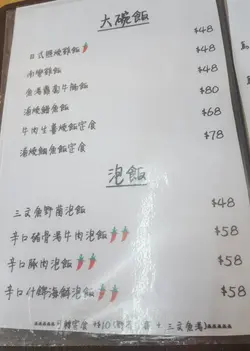 大碗飯
日式照燒雞飯 $48
南蠻雞飯 $48
魚湯蘿蔔牛腸飯 $48
蒲燒鰻魚飯 $80
牛肉生薑燒飯定食 $68
蒲燒鯛魚飯定食 $78
泡飯
三文魚野菌泡飯 $48
辛口豬骨湯牛肉泡飯 $58
辛口豚肉泡飯 $58
辛口什錦海鮮泡飯 $58
轉定食 +$10 三文魚湯)